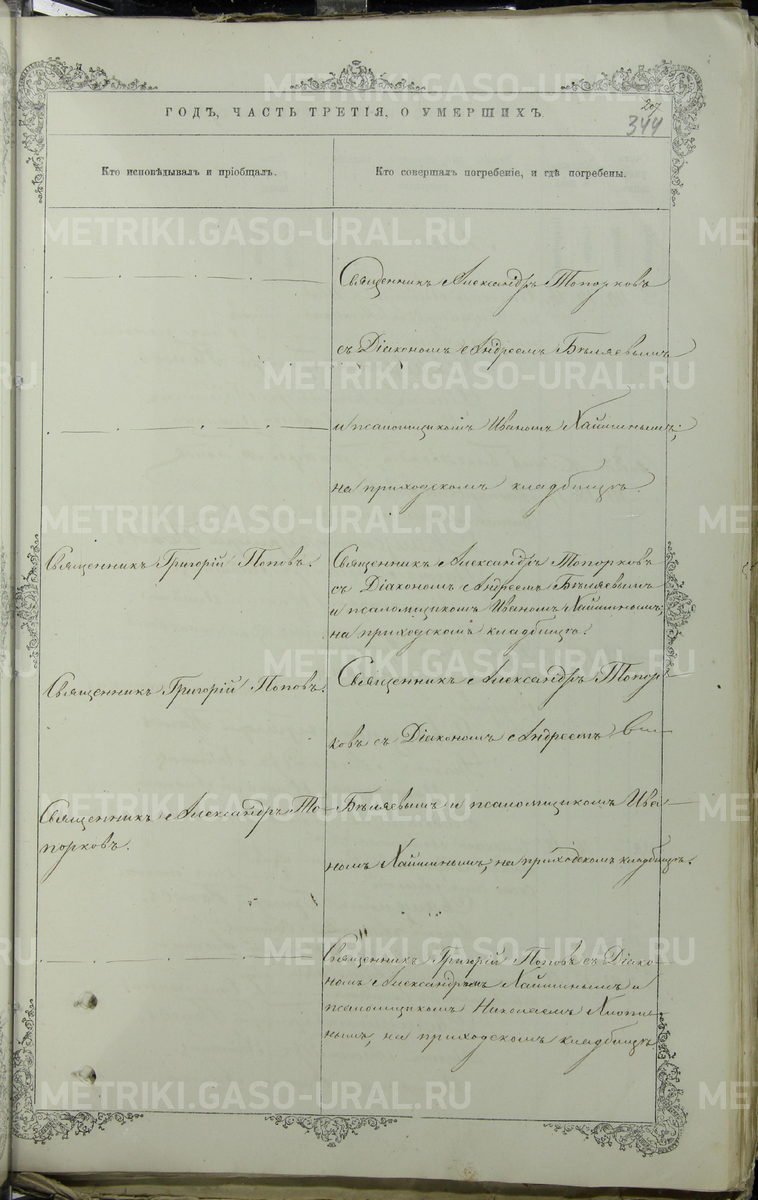 207
344
ГОДЪ, ЧАСТЬ ТРЕТІЯ, О УМЕРШИХЪ.
Кто исповѣдывалъ и пріобщалъ.
Кто совершалъ погребеніе, и гдѣ погребены.
Священникъ Александръ Топорковъ
съ Діакономъ Андреемъ Бѣляевымъ
и псаломщикомъ Иваномъ Хайминымъ;
на приходскомъ кладбищѣ.
Священникъ Григорій Поповъ.
Священникъ Александръ Топорковъ
съ Діакономъ Андреемъ Бѣляевымъ
и псаломщикомъ Иваномъ Хайминымъ;
на приходскомъ кладбищѣ.
Священникъ Григорій Поповъ.
Священникъ Александръ Топор
ковъ съ Діакономъ Андреемъ
Священникъ Александръ То
порковъ.
Бѣляевымъ и псаломщикомъ Ива
номъ Хайминымъ, на приходскомъ кладбищѣ.
Священникъ Григорій Поповъ съ Діако
номъ Александромъ Хайминымъ и
псаломщикомъ Николаемъ
нымъ, на приходскомъ кладбищѣ
METRIKI.GASO-URAL.RU